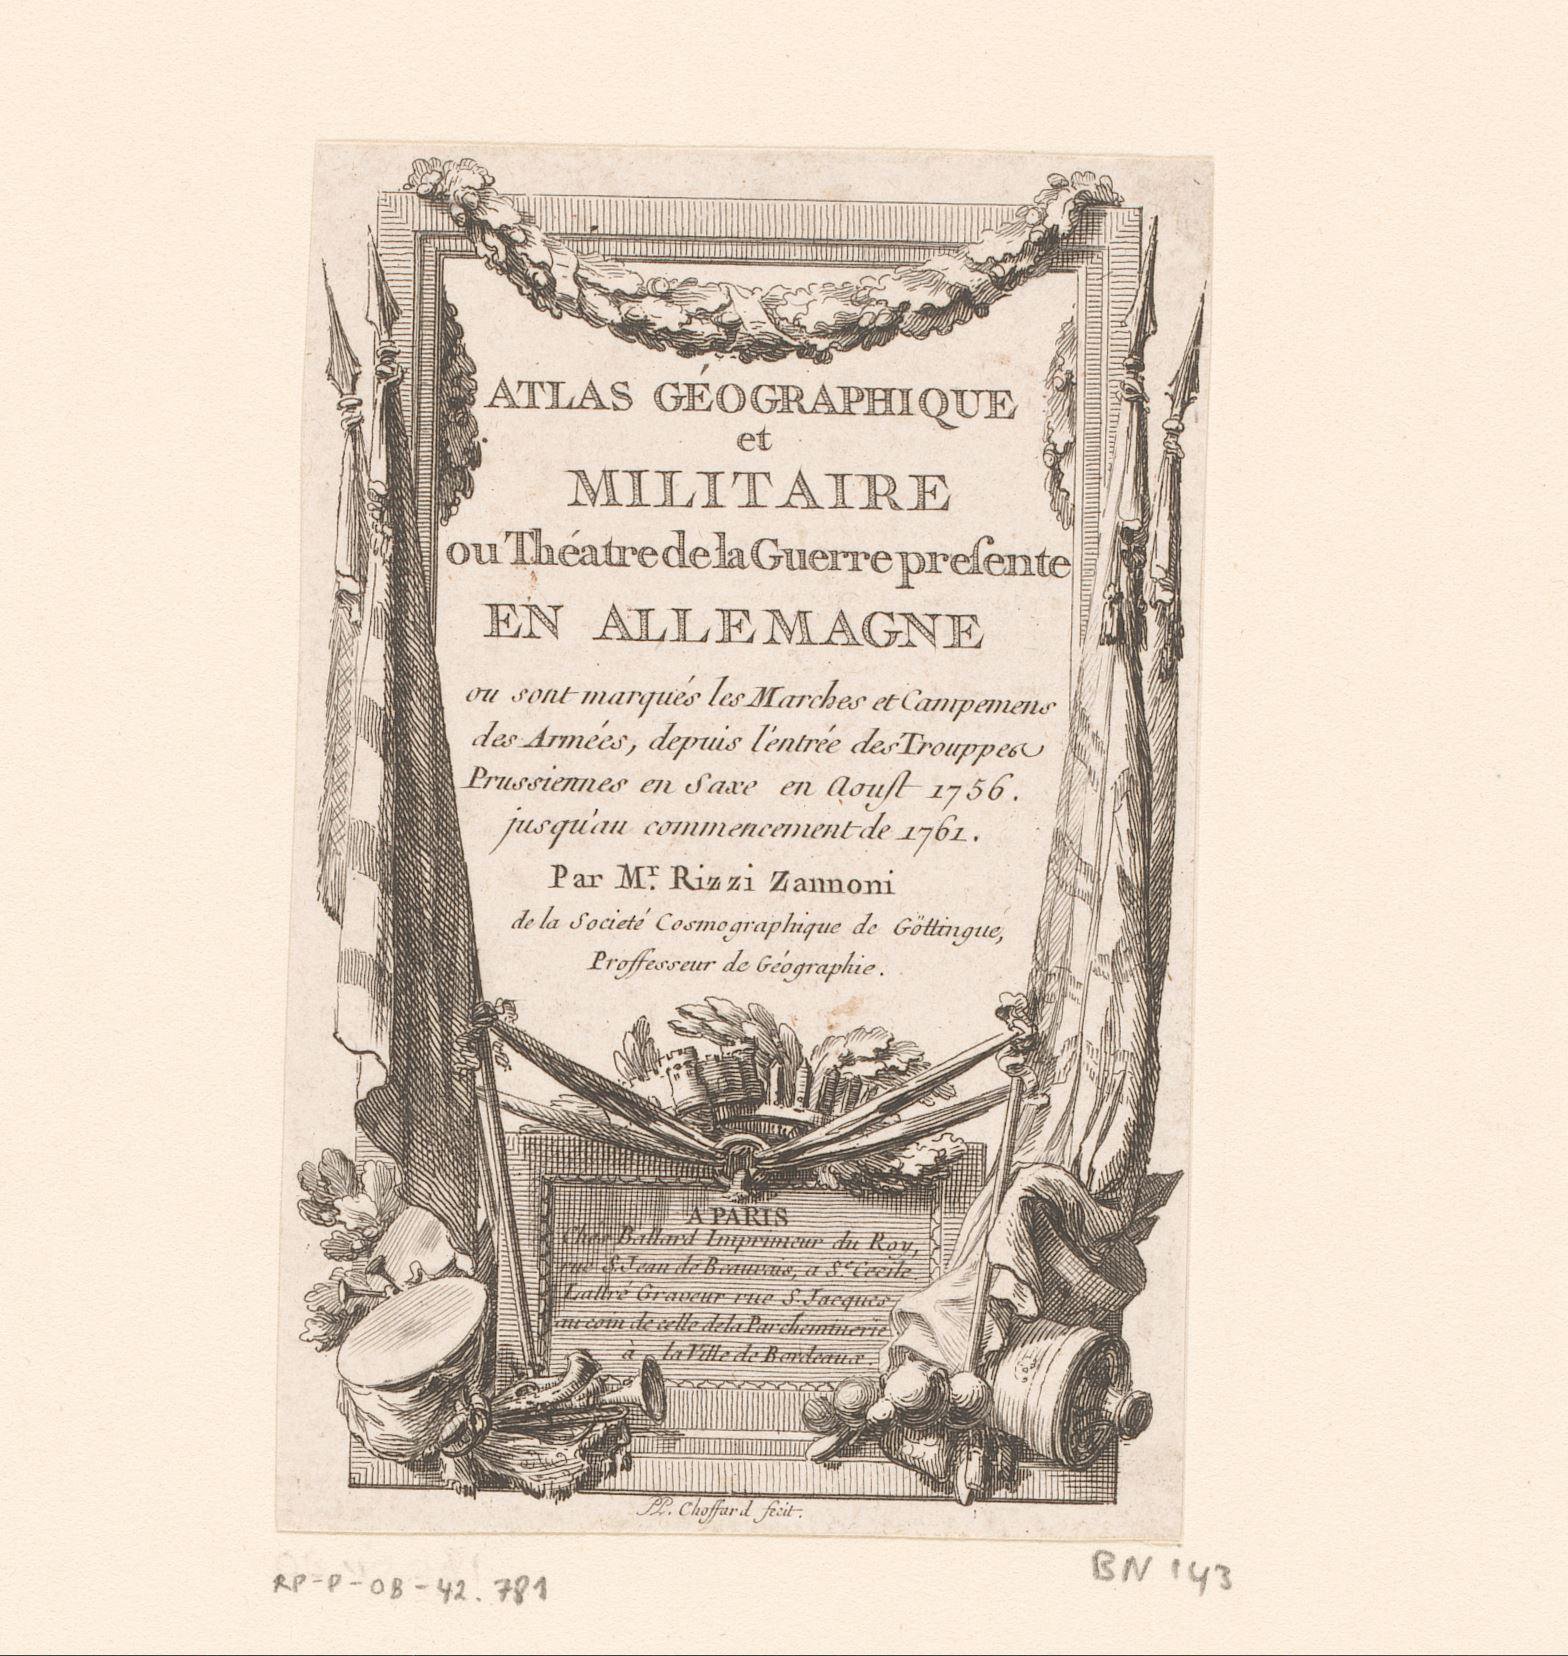 ATLAS GÉOGRAPHIQUE
et
MILITAIRE
ou Théatre de la Guerre preſente
EN ALLEMAGNE
ou sont marqués les Marches et Campemens
des Armées, depuis l'entrée des Trouppes
Prussiennes en Saxe en Aouſt 1756.
jusqu'au commencement de 1761.
Par Mr. Rizzi Zannoni
de la Societé Cosmographique de Göttingue,
Proffesseur de Géographie.
A PARIS
Chez Ballard Imprimeur du Roy,
rue S. Jean de Beauvais, a Ste Cecile.
Lattré Graveur rue S. Jacques
au coin de celle de la Parcheminerie
à la Ville de Bordeaux.
P.P. Choffard fecit.
RP-P-OB-42.781
BN 143